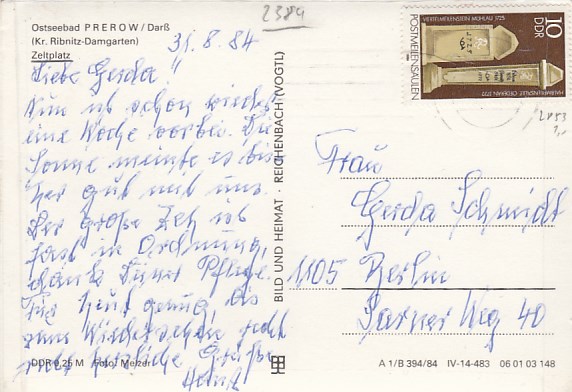 Ostseebad PREROW / Darß
(Kr. Ribnitz-Damgarten)
Zeltplatz
2389
31.8.84
Liebe Gerda!
Nun ist schon wieder
eine Woche vorbei. Die
Sonne meinte es bis
her gut mit uns.
Der große Zeh ist
fast in Ordnung,
dank Deiner Pflege.
Für heute genug, bis
zum Wiedersehen recht
recht herzliche Grüße
DDR 0,25 M Foto: Melzer
BILD UND HEIMAT · REICHENBACH (VOGTL)
VIERTELMEILENSTEIN MÜHLAU 1725
10
DDR
POSTMEILENSÄULEN
HALBMEILENSÄULE OEDERAN 1722
2853
Frau
Gerda Schmidt
1105 Berlin
Weg 40
A 1/B 394/84 IV-14-483 06 01 03 148